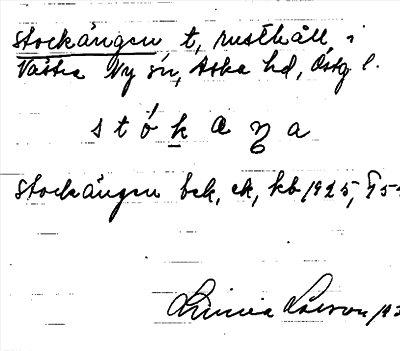 Stockängen t, rusthåll i
Västra Ny sn, Aska hd, Östg l.
s t ó k a ŋ a
Stockängen bck, ek, kb 1925, §5
Linnea Larson 193